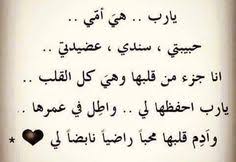 يارب .. هيَ أمّي ..
حبيبتي ، سندي ، عضيدتيّ ..
انا جزء من قلبها وهيَ كل القلب ..
يارب احفظها لي .. واطِل في عمرها ..
وأدِم قلبها محباً راضياً نابضاً لي 🖤 *